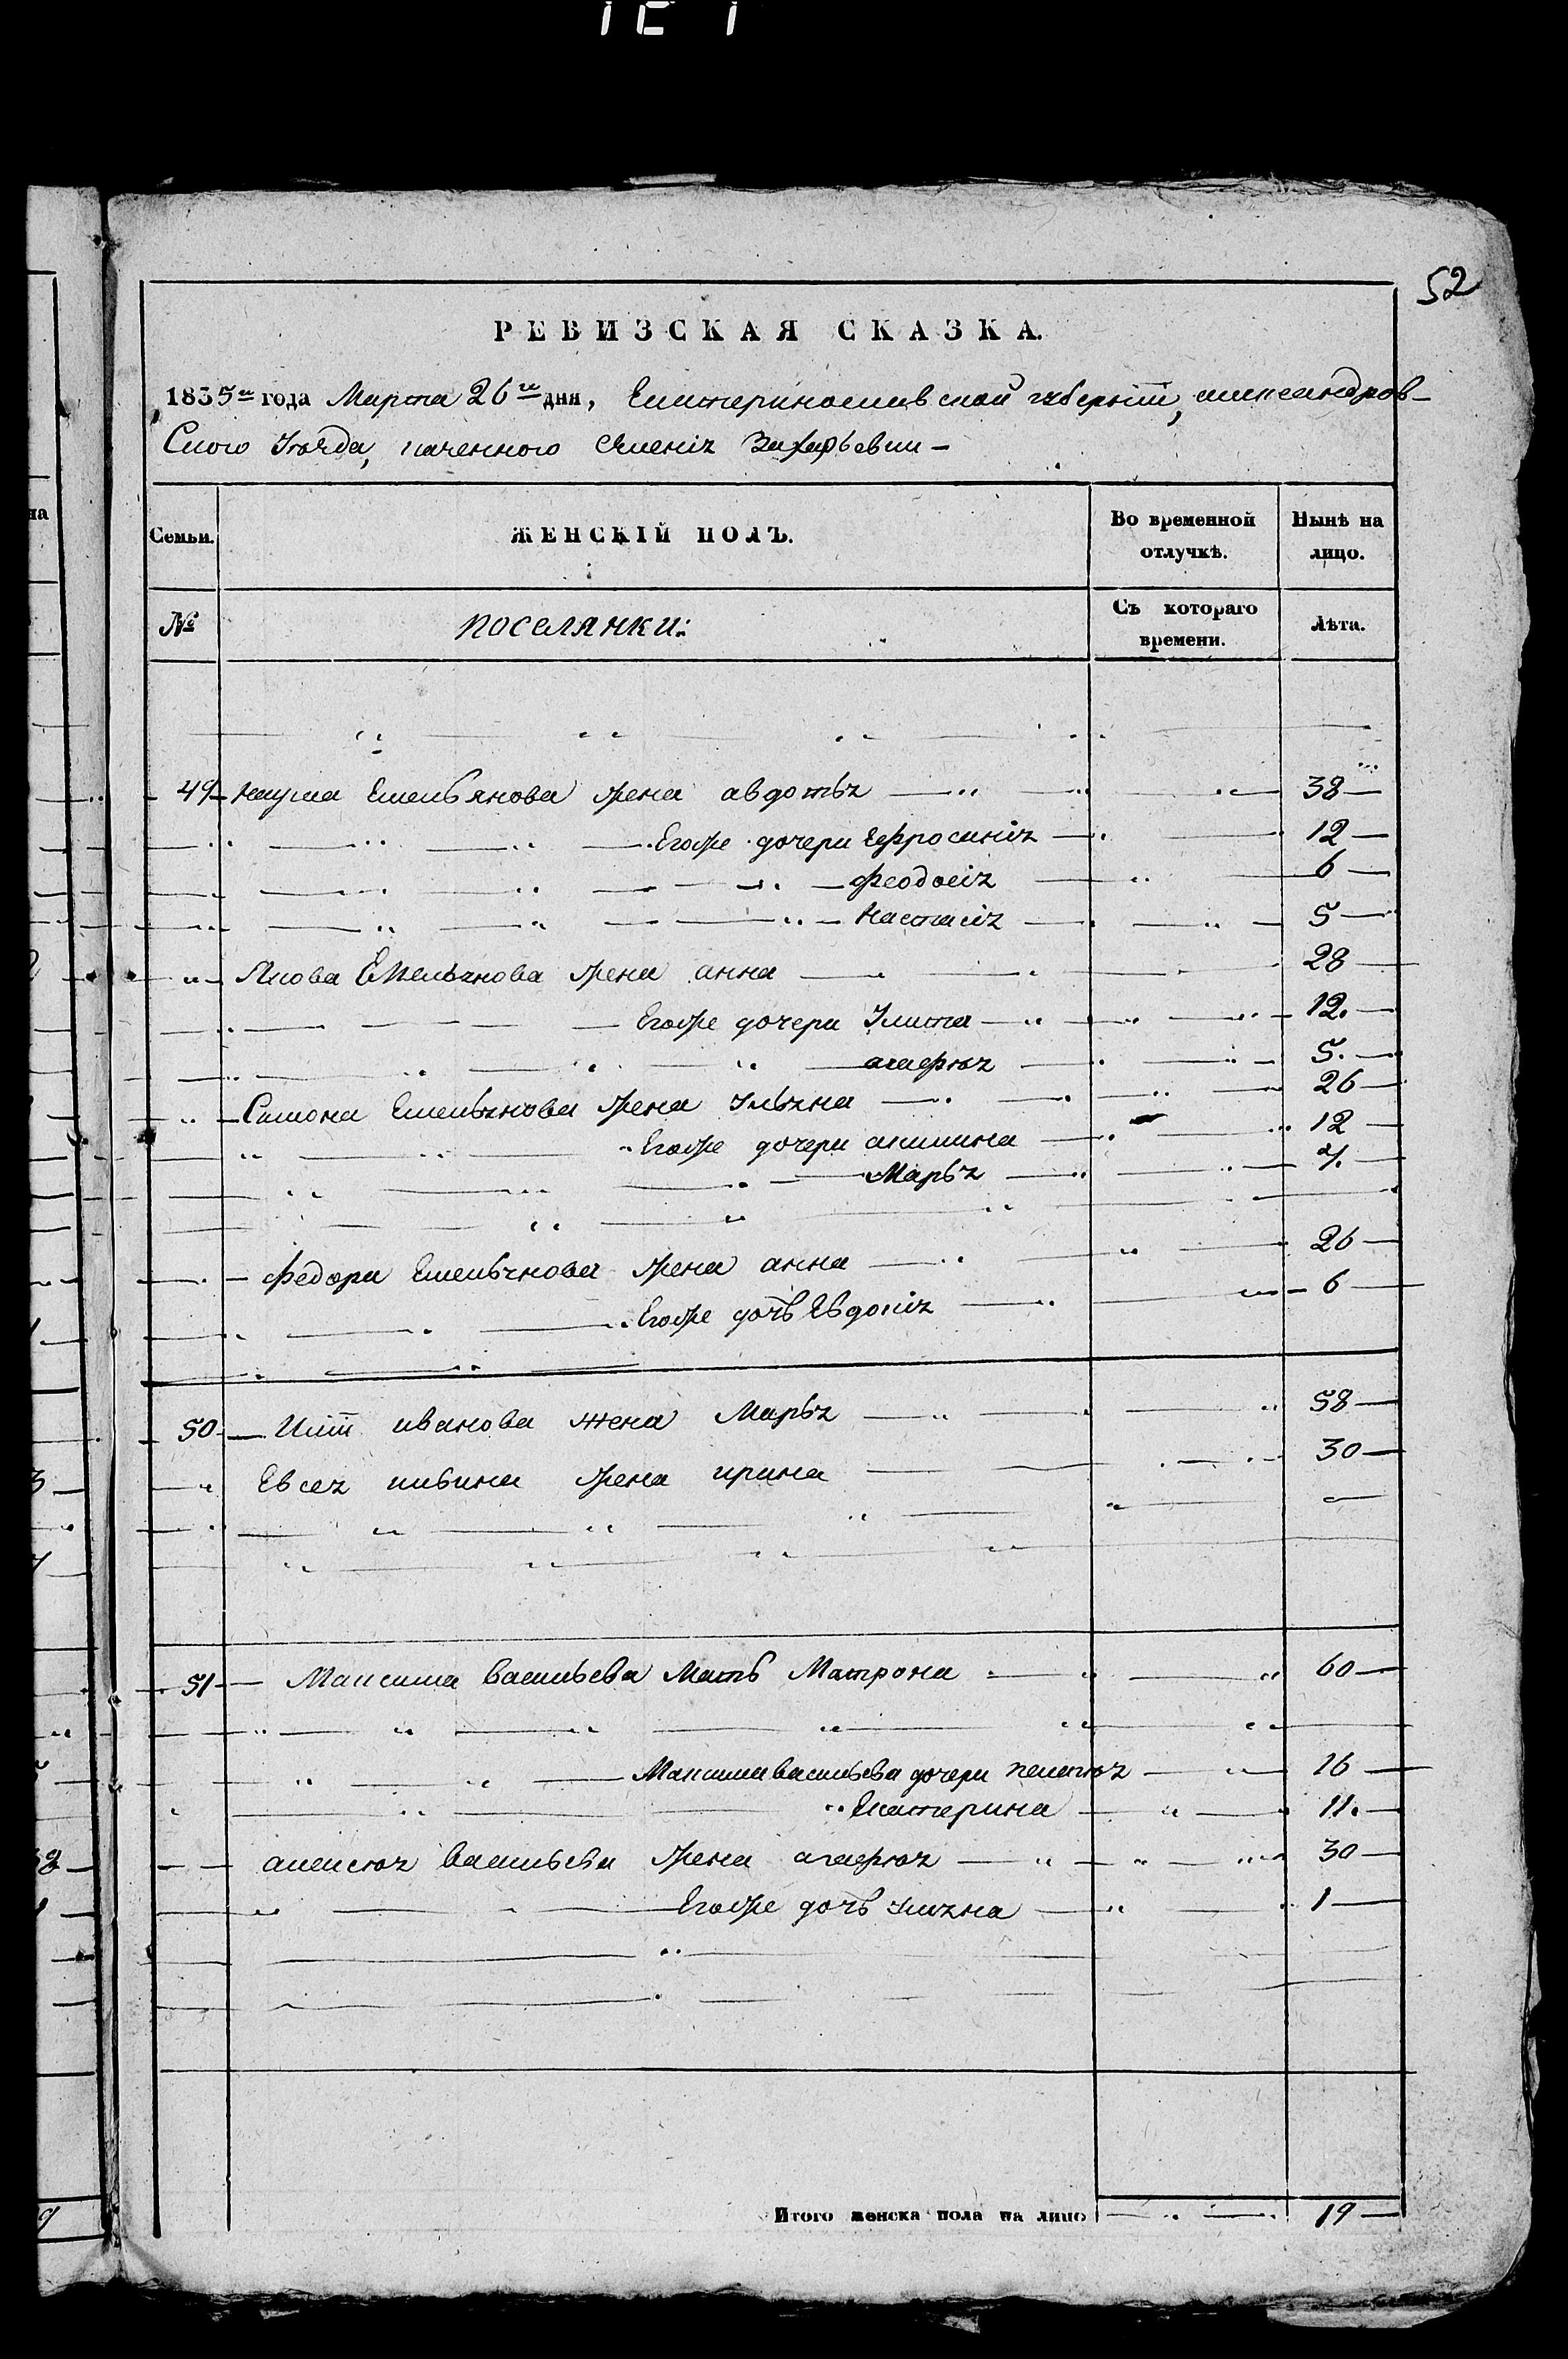 52
РЕВИЗСКАЯ СКАЗКА.
1835го года Марта 26го дня, Екатеринославской губерніи, александров-
ского уезда, казенного селенія Захарьевки –
Семьи. ЖЕНСКІЙ ПОЛЪ. Во временной отлучкѣ. Нынѣ на лицо.
№ поселянки: Съ котораго времени. Лѣта.
49 Наума Емельянова жена авдотья 38
Егоже дочери Ефросинія 12
Феодосія 6
Настасія 5
Якова Емельянова жена анна 28
Егоже дочери Улита 12.
агафья 5.
Самона Емельянова жена Ульяна 26
Егоже дочери акилина 12
Марья 4.
Федора Емельянова жена анна 26
Егоже дочь Евдокія 6
50 Иліи иванова жена Марья 58
Евсея ильина жена ирина 30
51 Максима васильева Мать Матрона 60
Максима васильева дочери пелагия 16
Екатерина 11.
алексея васильева жена агафья 30
Егоже дочь ульяна 1
Итого женска пола на лицо 19